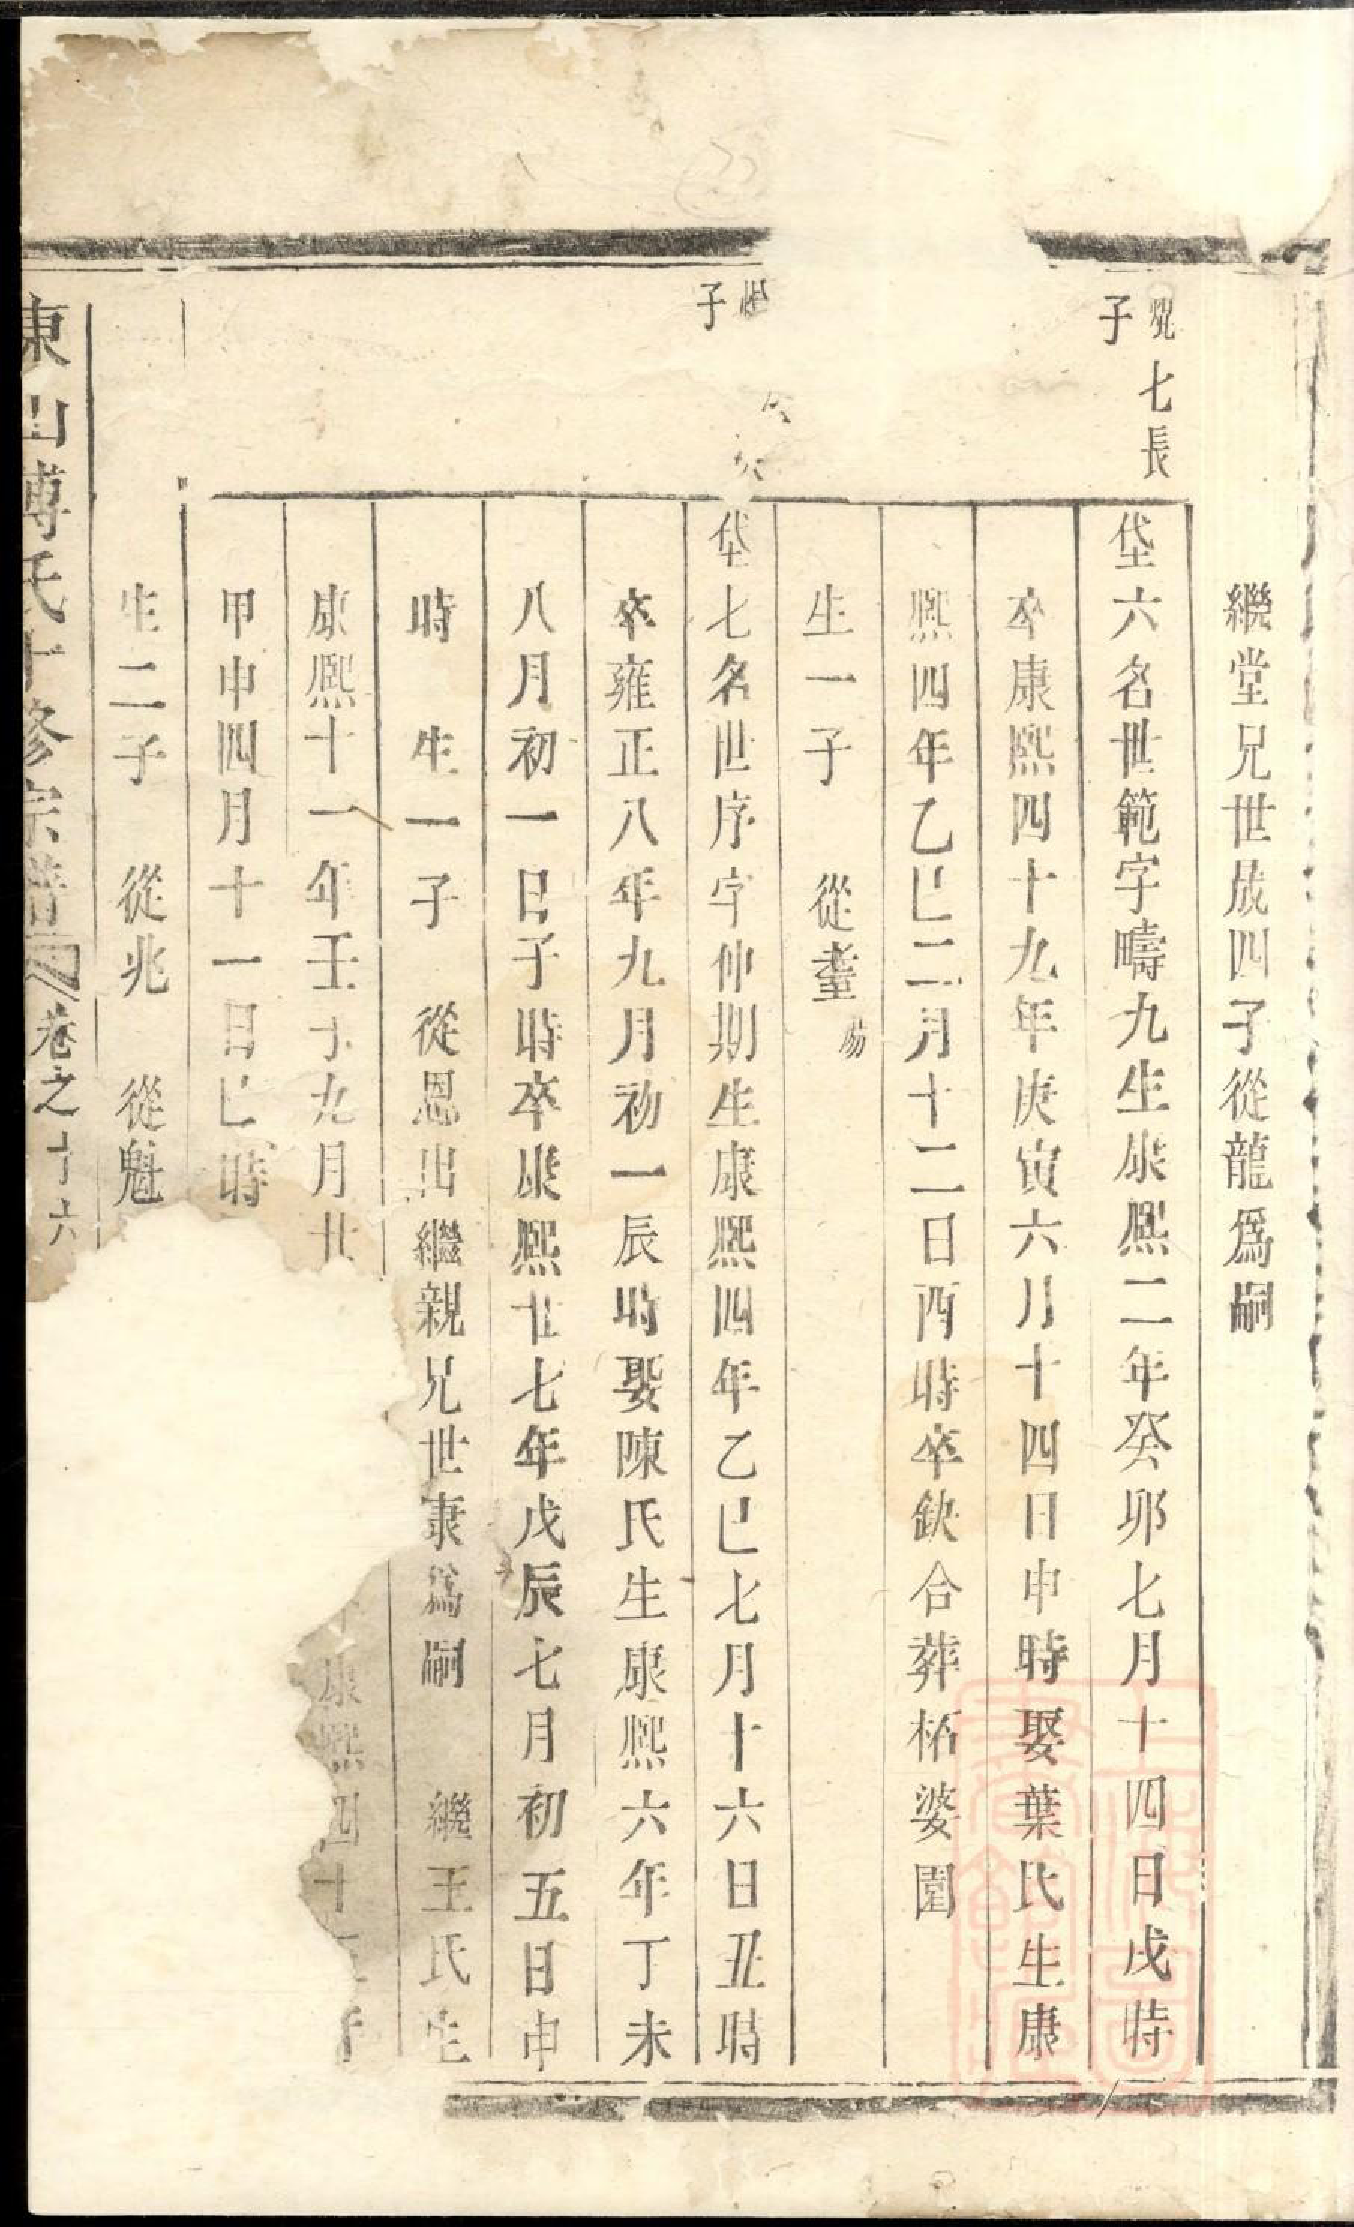 繼堂兄世晟四子從龍爲嗣
七長
子
垡六名世範字疇九生康熙二年癸卯七月十四日戌時
卒康熙四十九年庚寅六月十四日申時娶葉氏生康
熙四年乙巳二月十二日酉時卒缺合葬柘婆園
生一子 從𦒿殤
子
垡七名世序字仲期生康熙四年乙巳七月十六日丑時
卒雍正八年九月初一辰時娶陳氏生康熙六年丁未
八月初一日子時卒康熙廿七年戊辰七月初五日申
時 生一子 從恩出繼親兄世隶爲嗣 繼王氏生
康熙十一年壬子九月廿 康熙四十
甲申四月十一日巳時
生二子 從兆 從魁
東山傅氏十修宗譜 卷之十六